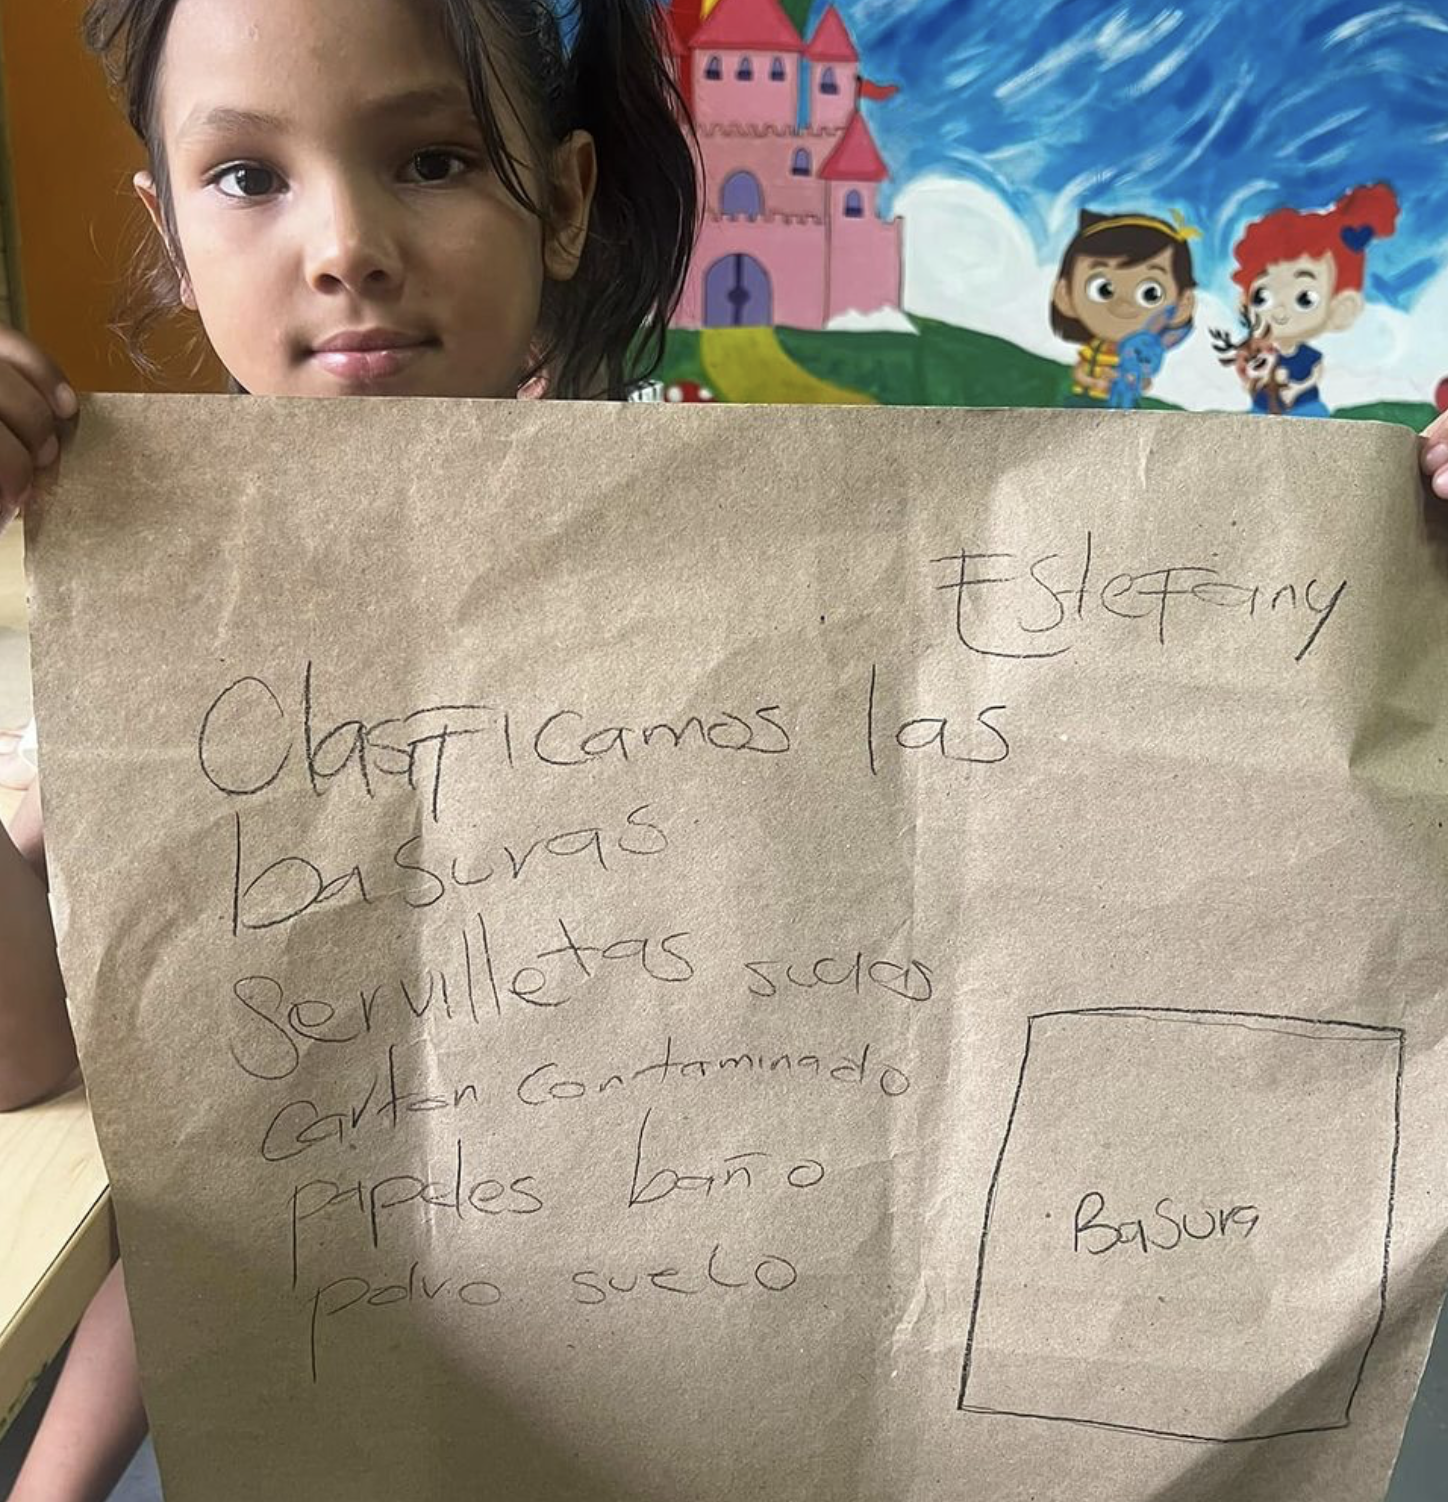 Estefany
Clasificamos las
basuras
Servilletas sucias
carton contaminado
papeles baño
polvo suelo
Basura